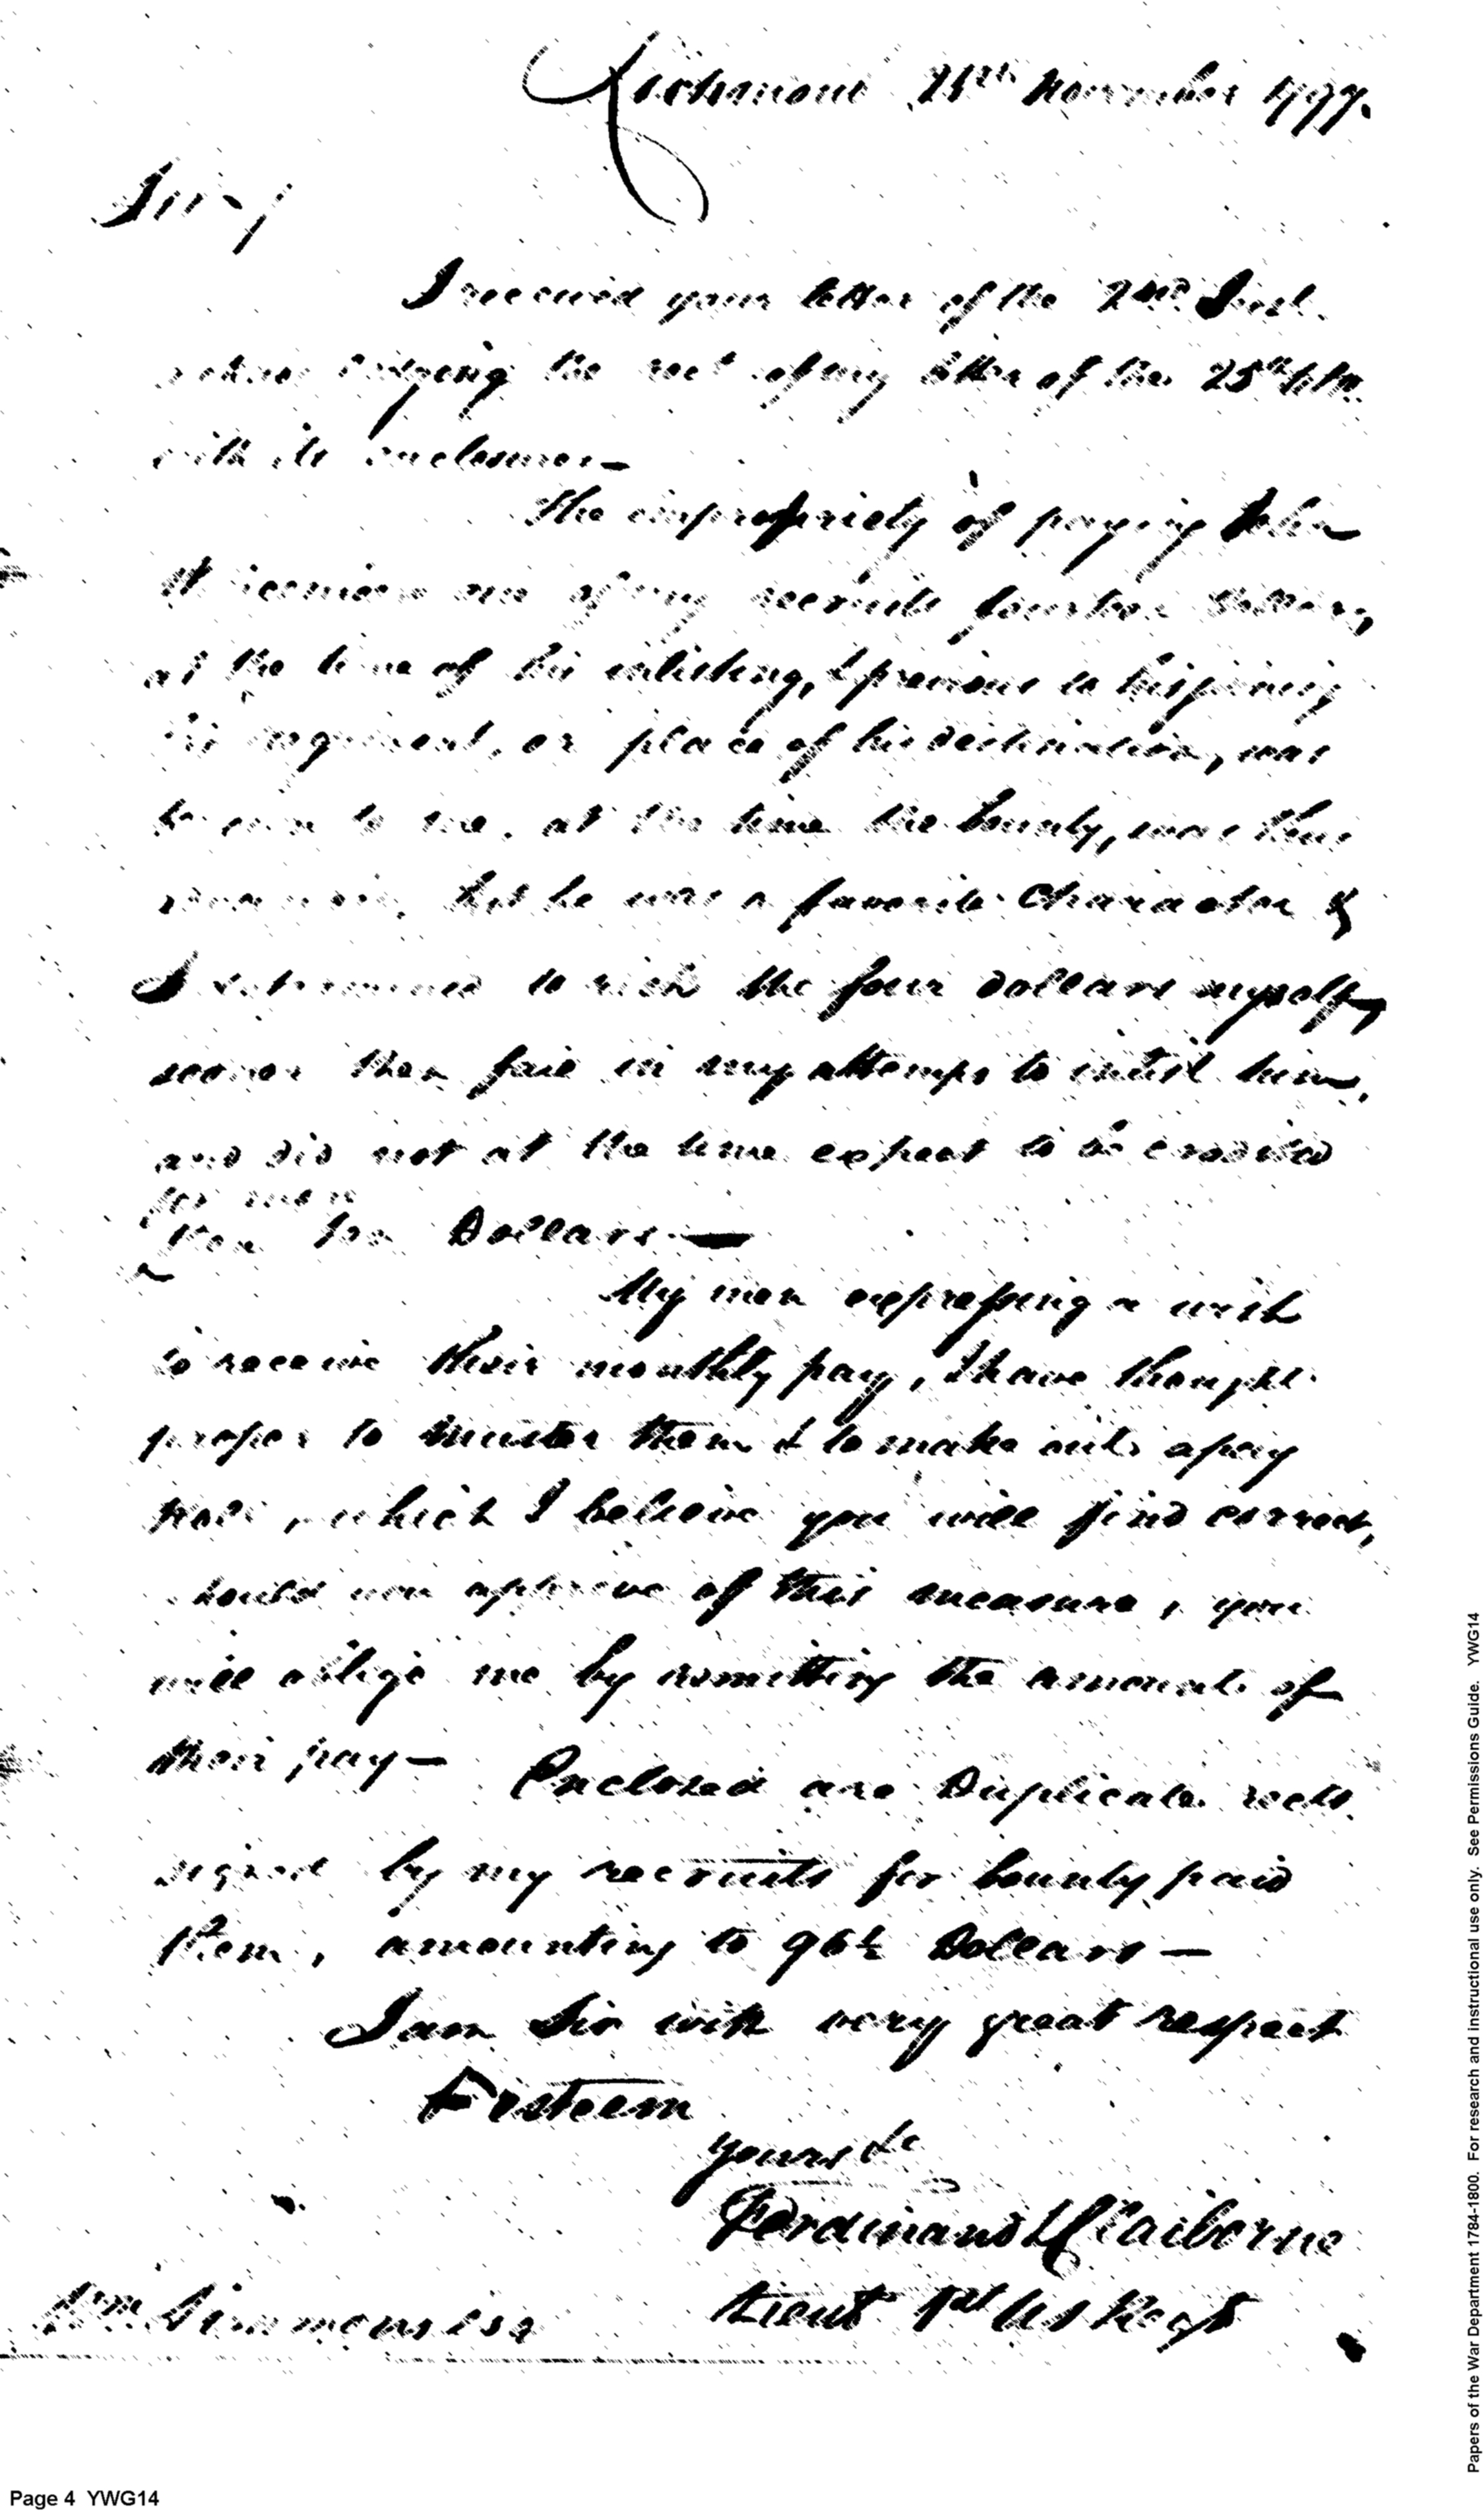 Richmond 21th November 1797.
Sir -/
I received your letter of the 2nd Inst.
acknowledging the rect of my letter of the 25th Ulto
with its enclosures —
The impropriety of paying John
one of my recruits fourteen Dollars,
at the time of his enlisting, & previous to his joining
his regiment, or place of his destination, was
known to me, at the time the bounty, was thus
but he was a favorite Character &
I determined to risk the four Dollars myself,
sooner than fail in my attempt to enlist him,
and did not at the time expect to be credited
for more
than ten Dollars —
My men expressing a wish
to receive their monthly pay, I have thought
proper to Muster them & to make out a pay
roll, which I believe you will find correct,
should you approve of this measure, you
will oblige me by remitting the amount of
their pay — Enclosed are Duplicate rects
signed by my recruits for bounty paid
them, amounting to 96½ Dollars —
I am Sir with very great respect
& esteem
yours &c
Ferdinand L Claiborne
Lieut 1st US Regt
Wm Simmons esq
Page 4 YWG14
Papers of the War Department 1784-1800. For research and instructional use only. See Permissions Guide. YWG14